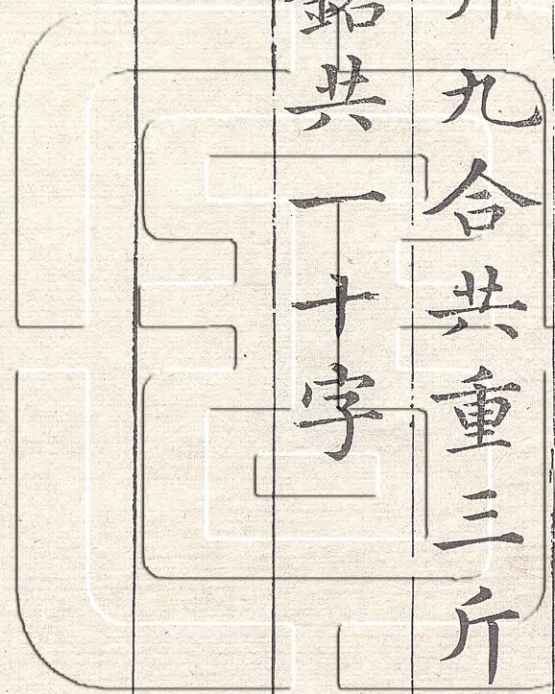 升九合共重三斤
銘共一十字